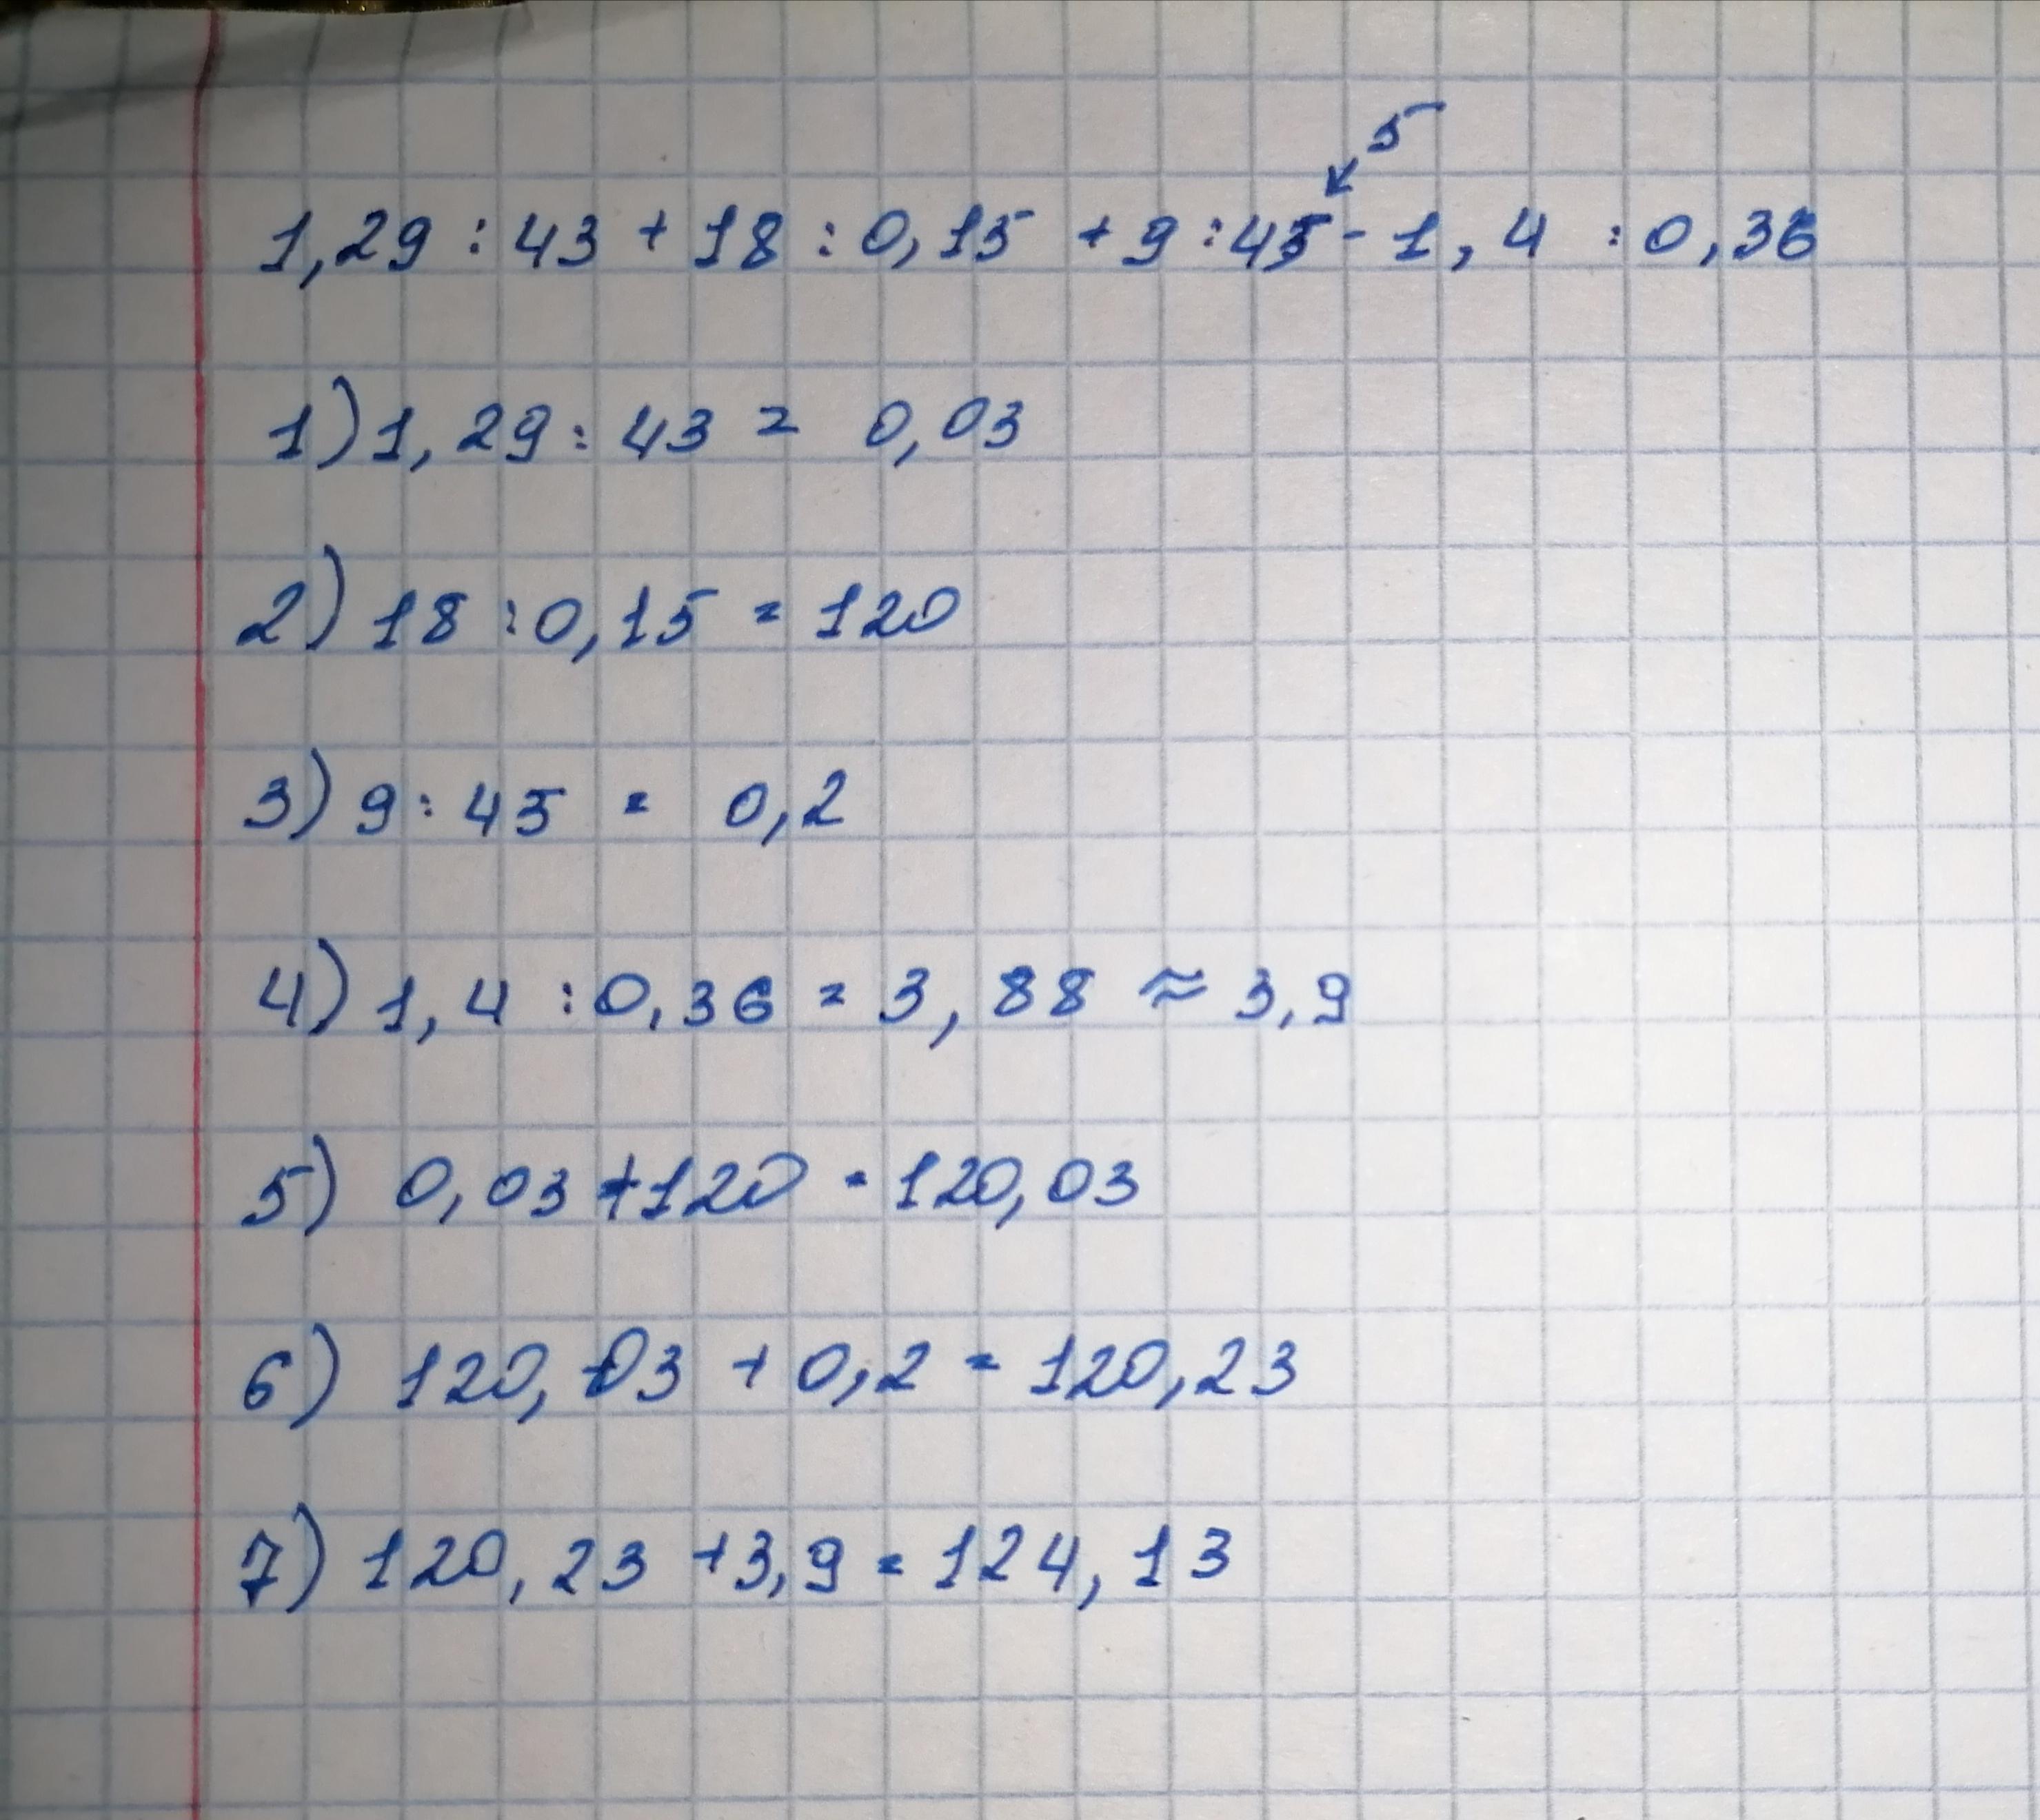 5
1,29 : 43 + 18 : 0,15 + 9 : 45 - 1,4 : 0,36
1) 1,29 : 43 = 0,03
2) 18 : 0,15 = 120
3) 9 : 45 = 0,2
4) 1,4 : 0,36 = 3,88 ≈ 3,9
5) 0,03 + 120 = 120,03
6) 120,03 + 0,2 = 120,23
7) 120,23 + 3,9 = 124,13